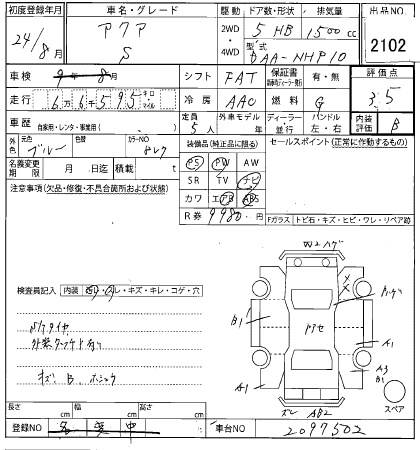 初度登録年月 車名・グレード 駆動 ドア数・形状 排気量 出品NO
24/8月 アクア S 2WD 4WD 5 HB 1500cc 2102
型式 DAA-NHP10
車検 9年8月 シフト FAT 保証書 有・無 評価点 3.5
走行 6万6千595 キロ マイル 冷房 AAC 燃料 G
車歴 自家用・レンタ・事業用( ) 定員 5人 外車モデル 年 ディーラー・並行 ハンドル 左・右 内装評価 B
外色 元色 ブルー 色替 カラーNO 8L7 装備品(純正品に限る) セールスポイント(正常に作動するもの)
名義変更期限 月 日迄 積載量 t PS PW AW
注意事項(欠品・修復・不具合箇所および状態) SR TV ナビ
カワ エアB ABS
R券 9980円 Fガラス トビ石・キズ・ヒビ・ワレ・リペア跡
検査員記入 内装 ・キズ・キレ・コゲ・穴
B1 A1
A1 A3 B1
キズ、B、
AB2 スペア
長さ cm 幅 cm 高さ cm
登録NO 名変中 車台NO 2097502